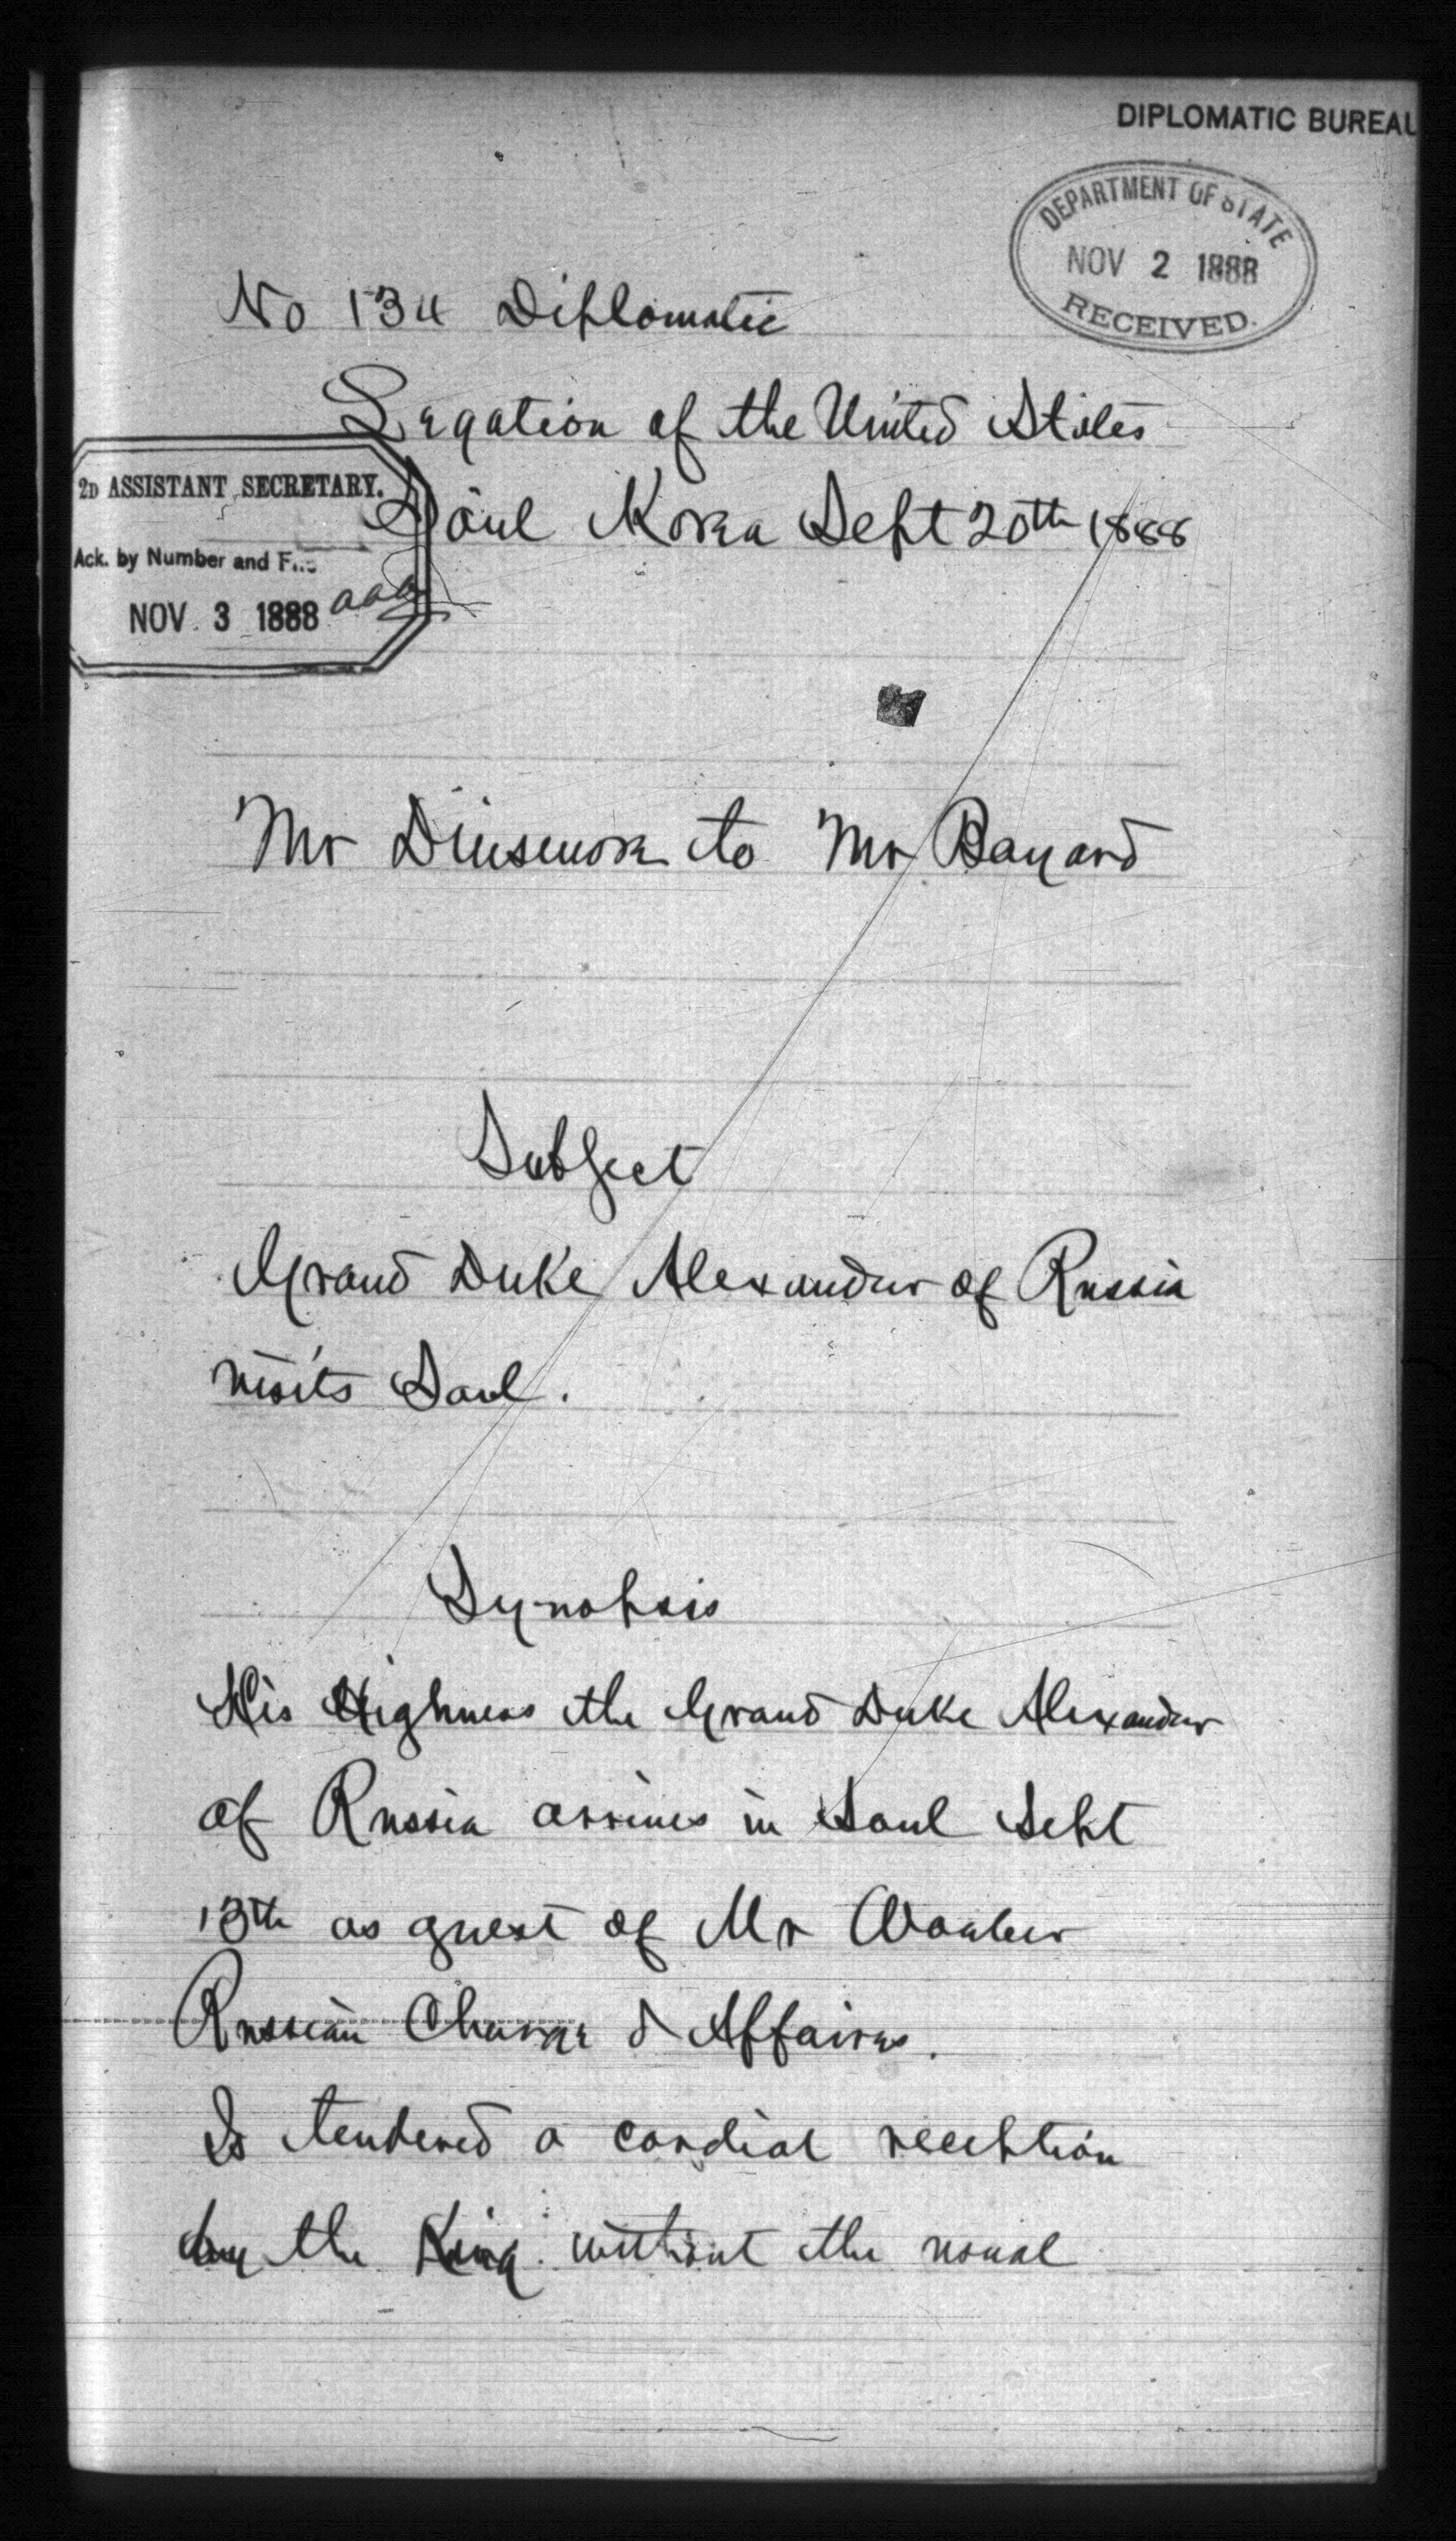 DIPLOMATIC BUREAU
DEPARTMENT OF STATE
NOV 2 1888
RECEIVED.
No 134 Diplomatic
Legation of the United States
2D ASSISTANT SECRETARY.
Söul Korea Sept 20th 1888
Ack. by Number and File
NOV 3 1888 aaa
Mr Dinsmore to Mr Bayard
Subject
Grand Duke Alexander of Russia
visits Soul.
Synopsis
His Highness the Grand Duke Alexander
of Russia arrives in Soul Sept
13th as guest of Mr Waeber
Russian Charge d Affaires.
Is tendered a cordial reception
by the King without the usual